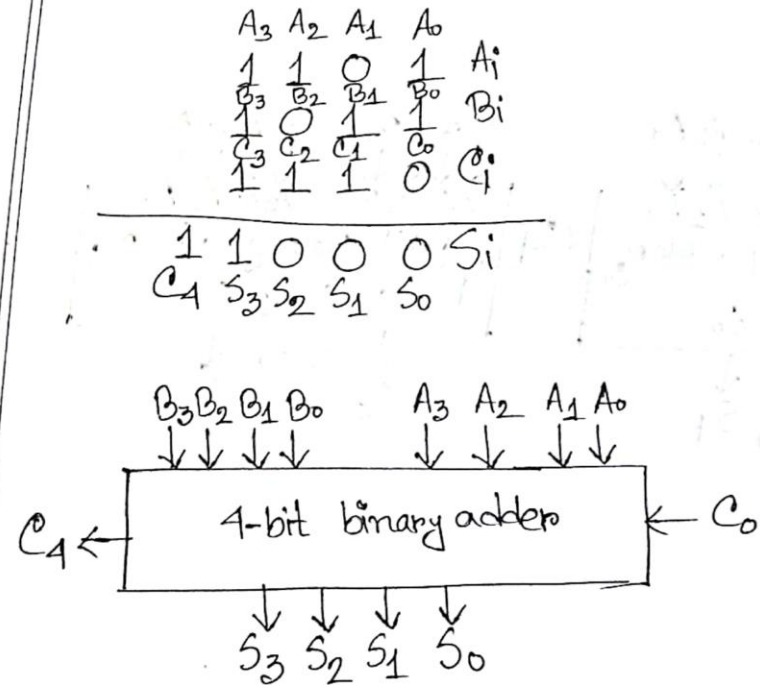 A₃ A₂ A₁ A₀
1 1 0 1 Ai
B₃ B₂ B₁ B₀
1 0 1 1 Bi
C₃ C₂ C₁ C₀
1 1 1 0 Ci
1 1 0 0 0 Si
C₄ S₃ S₂ S₁ S₀
B₃ B₂ B₁ B₀ A₃ A₂ A₁ A₀
C₄ 4-bit binary adder C₀
S₃ S₂ S₁ S₀